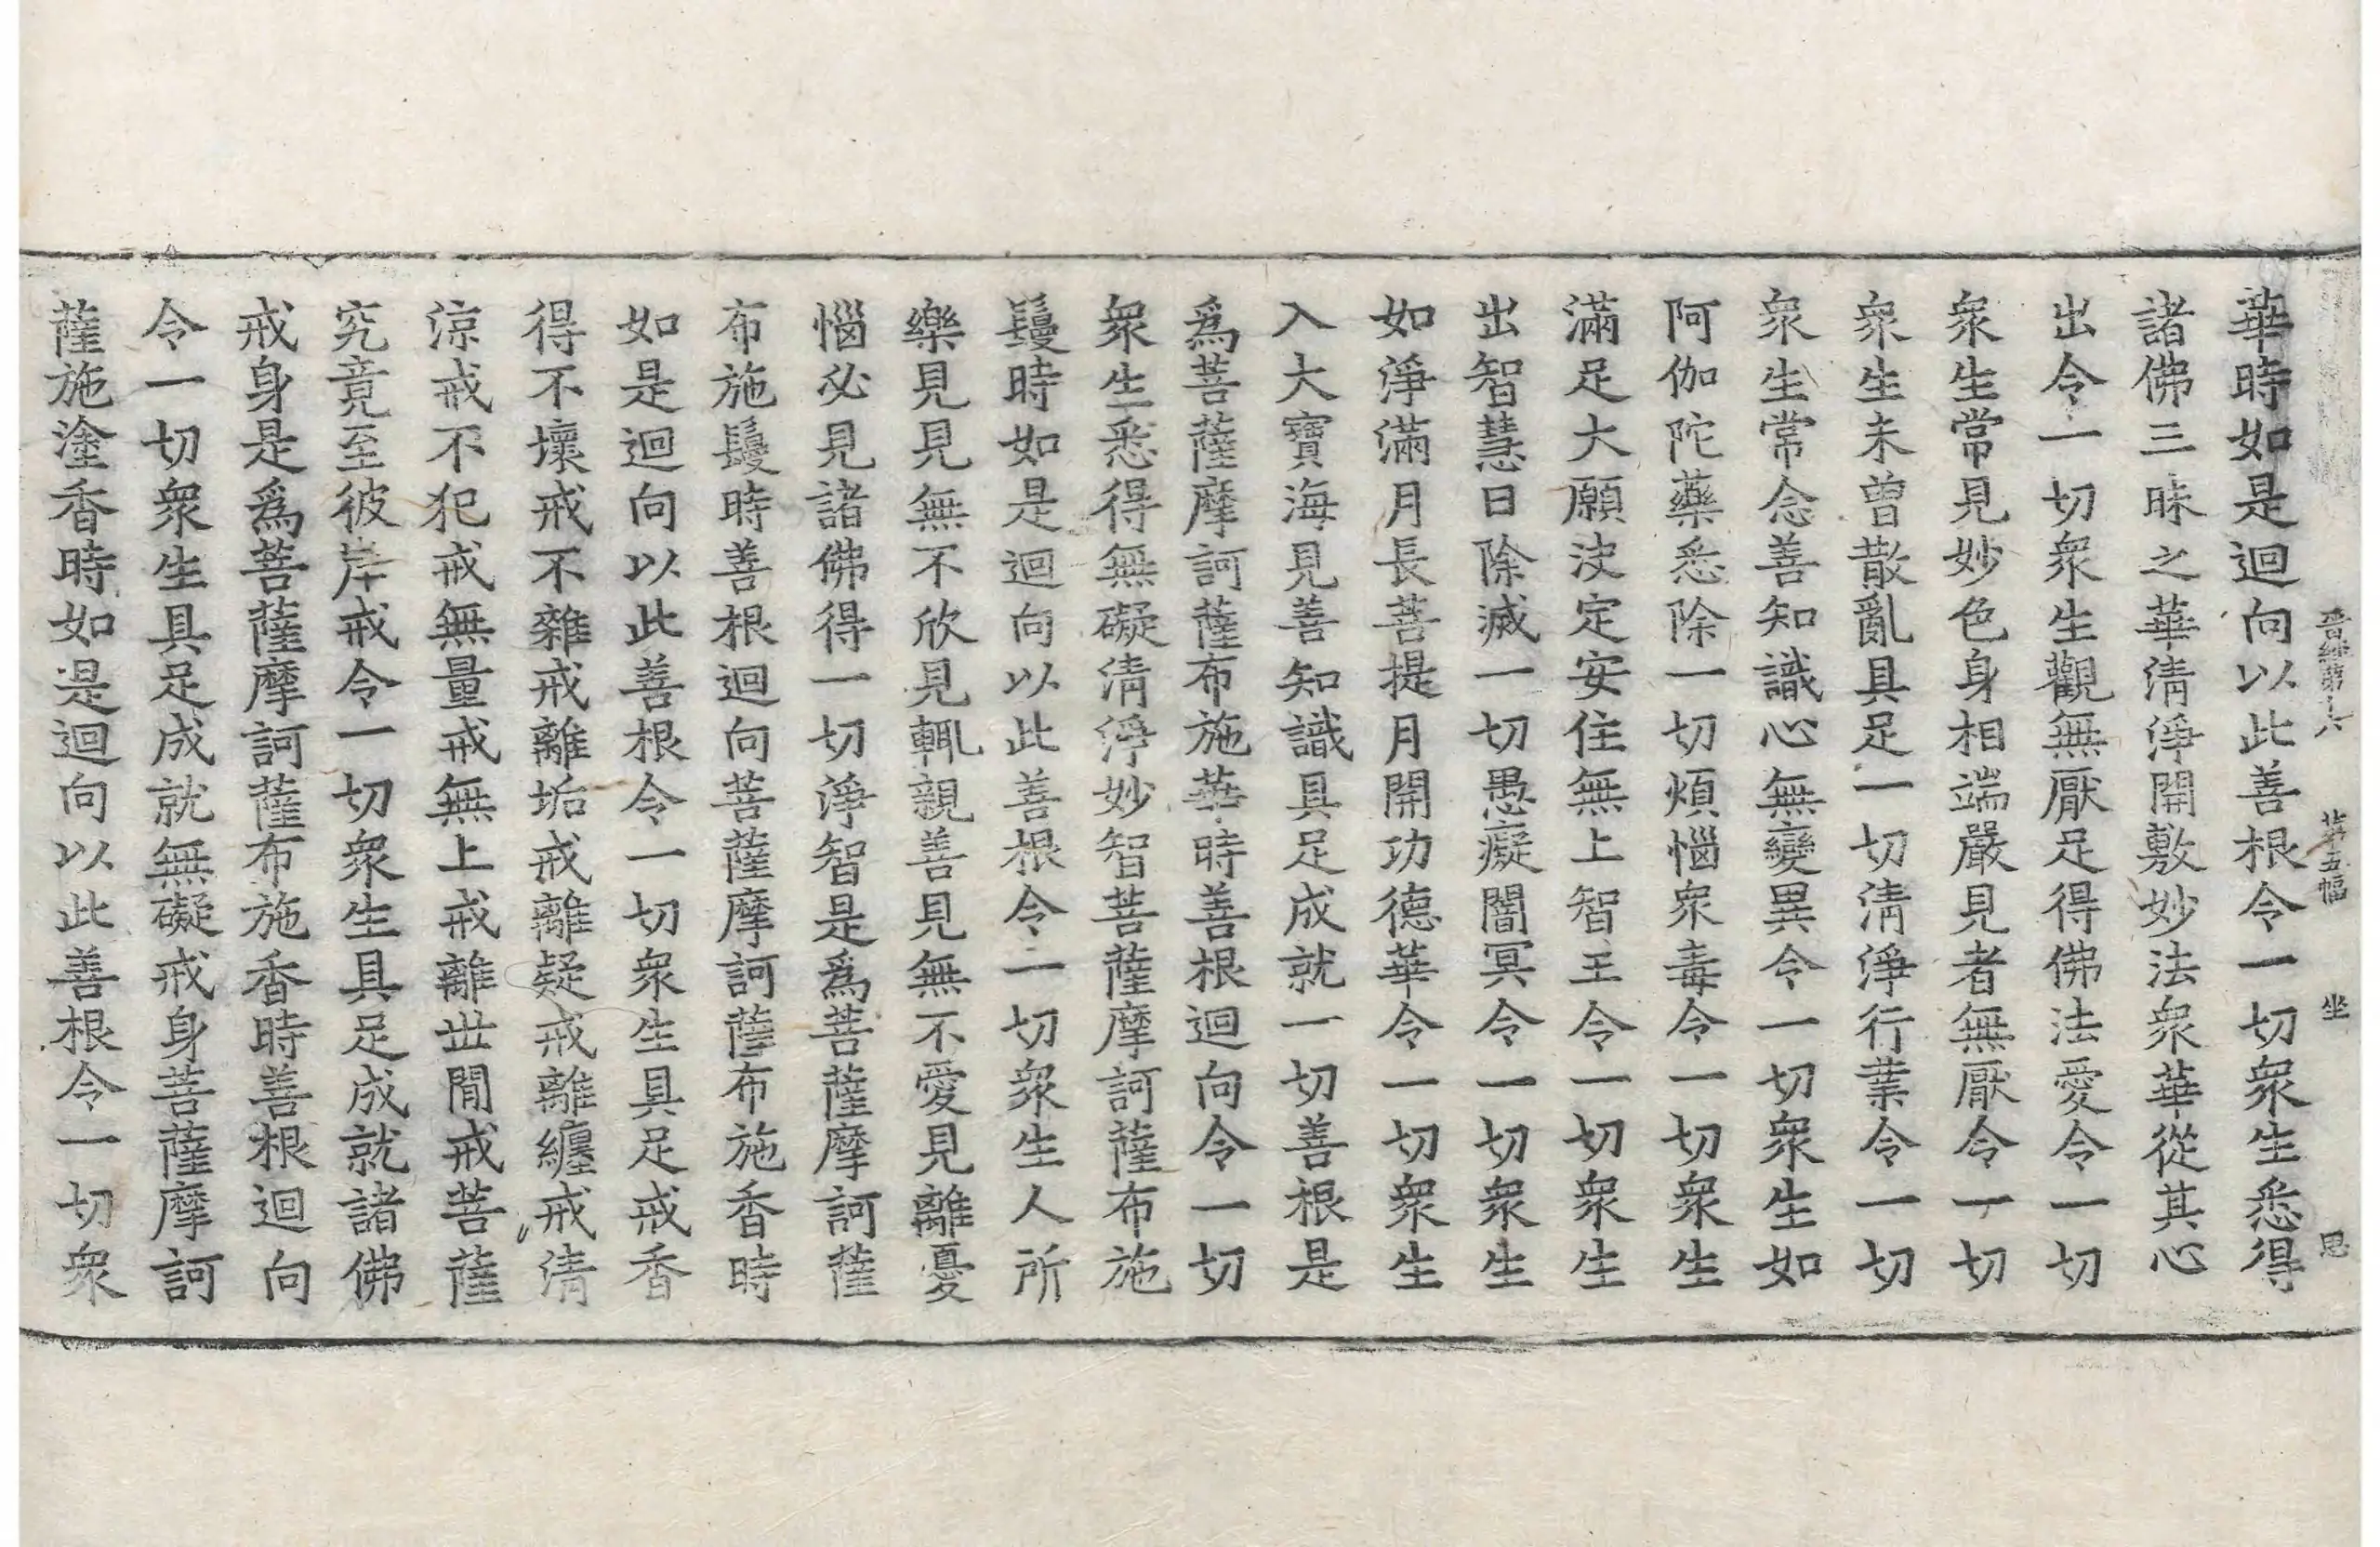 晋經第十六 第五幅 坐 恩
華時如是迴向以此善根令一切衆生悉得
諸佛三昧之華清淨開敷妙法衆華從其心
出令一切衆生觀無厭足得佛法愛令一切
衆生常見妙色身相端嚴見者無厭令一切
衆生未曾散亂具足一切清淨行業令一切
衆生常念善知識心無變異令一切衆生如
阿伽陀藥悉除一切煩惱衆毒令一切衆生
滿足大願决定安住無上智王令一切衆生
出智慧日除滅一切愚癡闇冥令一切衆生
如淨滿月長菩提月開功德華令一切衆生
入大寶海見善知識具足成就一切善根是
爲菩薩摩訶薩布施華時善根迴向令一切
衆生悉得無礙清淨妙智菩薩摩訶薩布施
鬘時如是迴向以此善根令一切衆生人所
樂見見無不欣見輒親善見無不愛見離憂
惱必見諸佛得一切淨智是爲菩薩摩訶薩
布施鬘時善根迴向菩薩摩訶薩布施香時
如是迴向以此善根令一切衆生具足戒香
得不壞戒不雜戒離垢戒離疑戒離纏戒清
涼戒不犯戒無量戒無上戒離世間戒菩薩
究竟至彼岸戒令一切衆生具足成就諸佛
戒身是爲菩薩摩訶薩布施香時善根迴向
令一切衆生具足成就無礙戒身菩薩摩訶
薩施塗香時如是迴向以此善根令一切衆